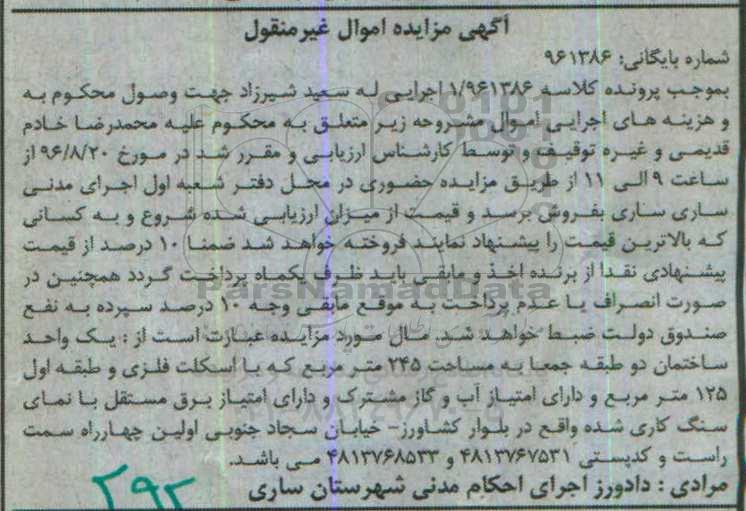 آگهی مزایده اموال غیرمنقول
شماره بایگانی: ۹۶۱۳۸۶
بموجب پرونده کلاسه ۱/۹۶۱۳۸۶ اجرایی له سعید شیرزاد جهت وصول محکوم به
و هزینه های اجرایی اموال مشروحه زیر متعلق به محکوم علیه محمدرضا خادم
قدیمی و غیره توقیف و توسط کارشناس ارزیابی و مقرر شد در مورخ ۹۶/۸/۲۰ از
ساعت ۹ الی ۱۱ از طریق مزایده حضوری در محل دفتر شعبه اول اجرای مدنی
ساری ساری بفروش برسد و قیمت از میزان ارزیابی شده شروع و به کسانی
که بالاترین قیمت را پیشنهاد نمایند فروخته خواهد شد ضمنا ۱۰ درصد از قیمت
پیشنهادی نقدا از برنده اخذ و مابقی باید ظرف یکماه پرداخت گردد همچنین در
صورت انصراف یا عدم پرداخت به موقع مابقی وجه ۱۰ درصد سپرده به نفع
صندوق دولت ضبط خواهد شد. مال مورد مزایده عبارت است از : یک واحد
ساختمان دو طبقه جمعا به مساحت ۲۴۵ متر مربع که با اسکلت فلزی و طبقه اول
۱۲۵ متر مربع و دارای امتیاز آب و گاز مشترک و دارای امتیاز برق مستقل با نمای
سنگ کاری شده واقع در بلوار کشاورز- خیابان سجاد جنوبی اولین چهارراه سمت
راست و کدپستی ۴۸۱۳۷۶۷۵۳۱ و ۴۸۱۳۷۶۸۵۳۳ می باشد.
مرادی : دادورز اجرای احکام مدنی شهرستان ساری
۲۹۲
ParsNamadData